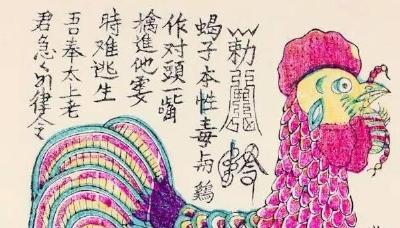 勅
蝎子本性毒与鷄
作对頭一嘴
擒進他霎
時难逃生
吾奉太上老
君急々如律令